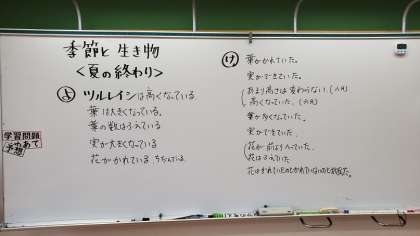 季節と生き物
<夏の終わり>
よ ツルレイシは高くなっている。
葉は大きくなっている。
葉の数はふえている
実が大きくなっている
花がかれている ちぢんでいる
学習問題
めあて
予想
け 葉がかれていた。
実ができていた。
あまり高さは変わらない(人)
高くなっていた。(人)
葉が多くなっていた。
実ができていた。
花が前よりへっていた。
花はふえていた
花はかれていたのとかれていないのと